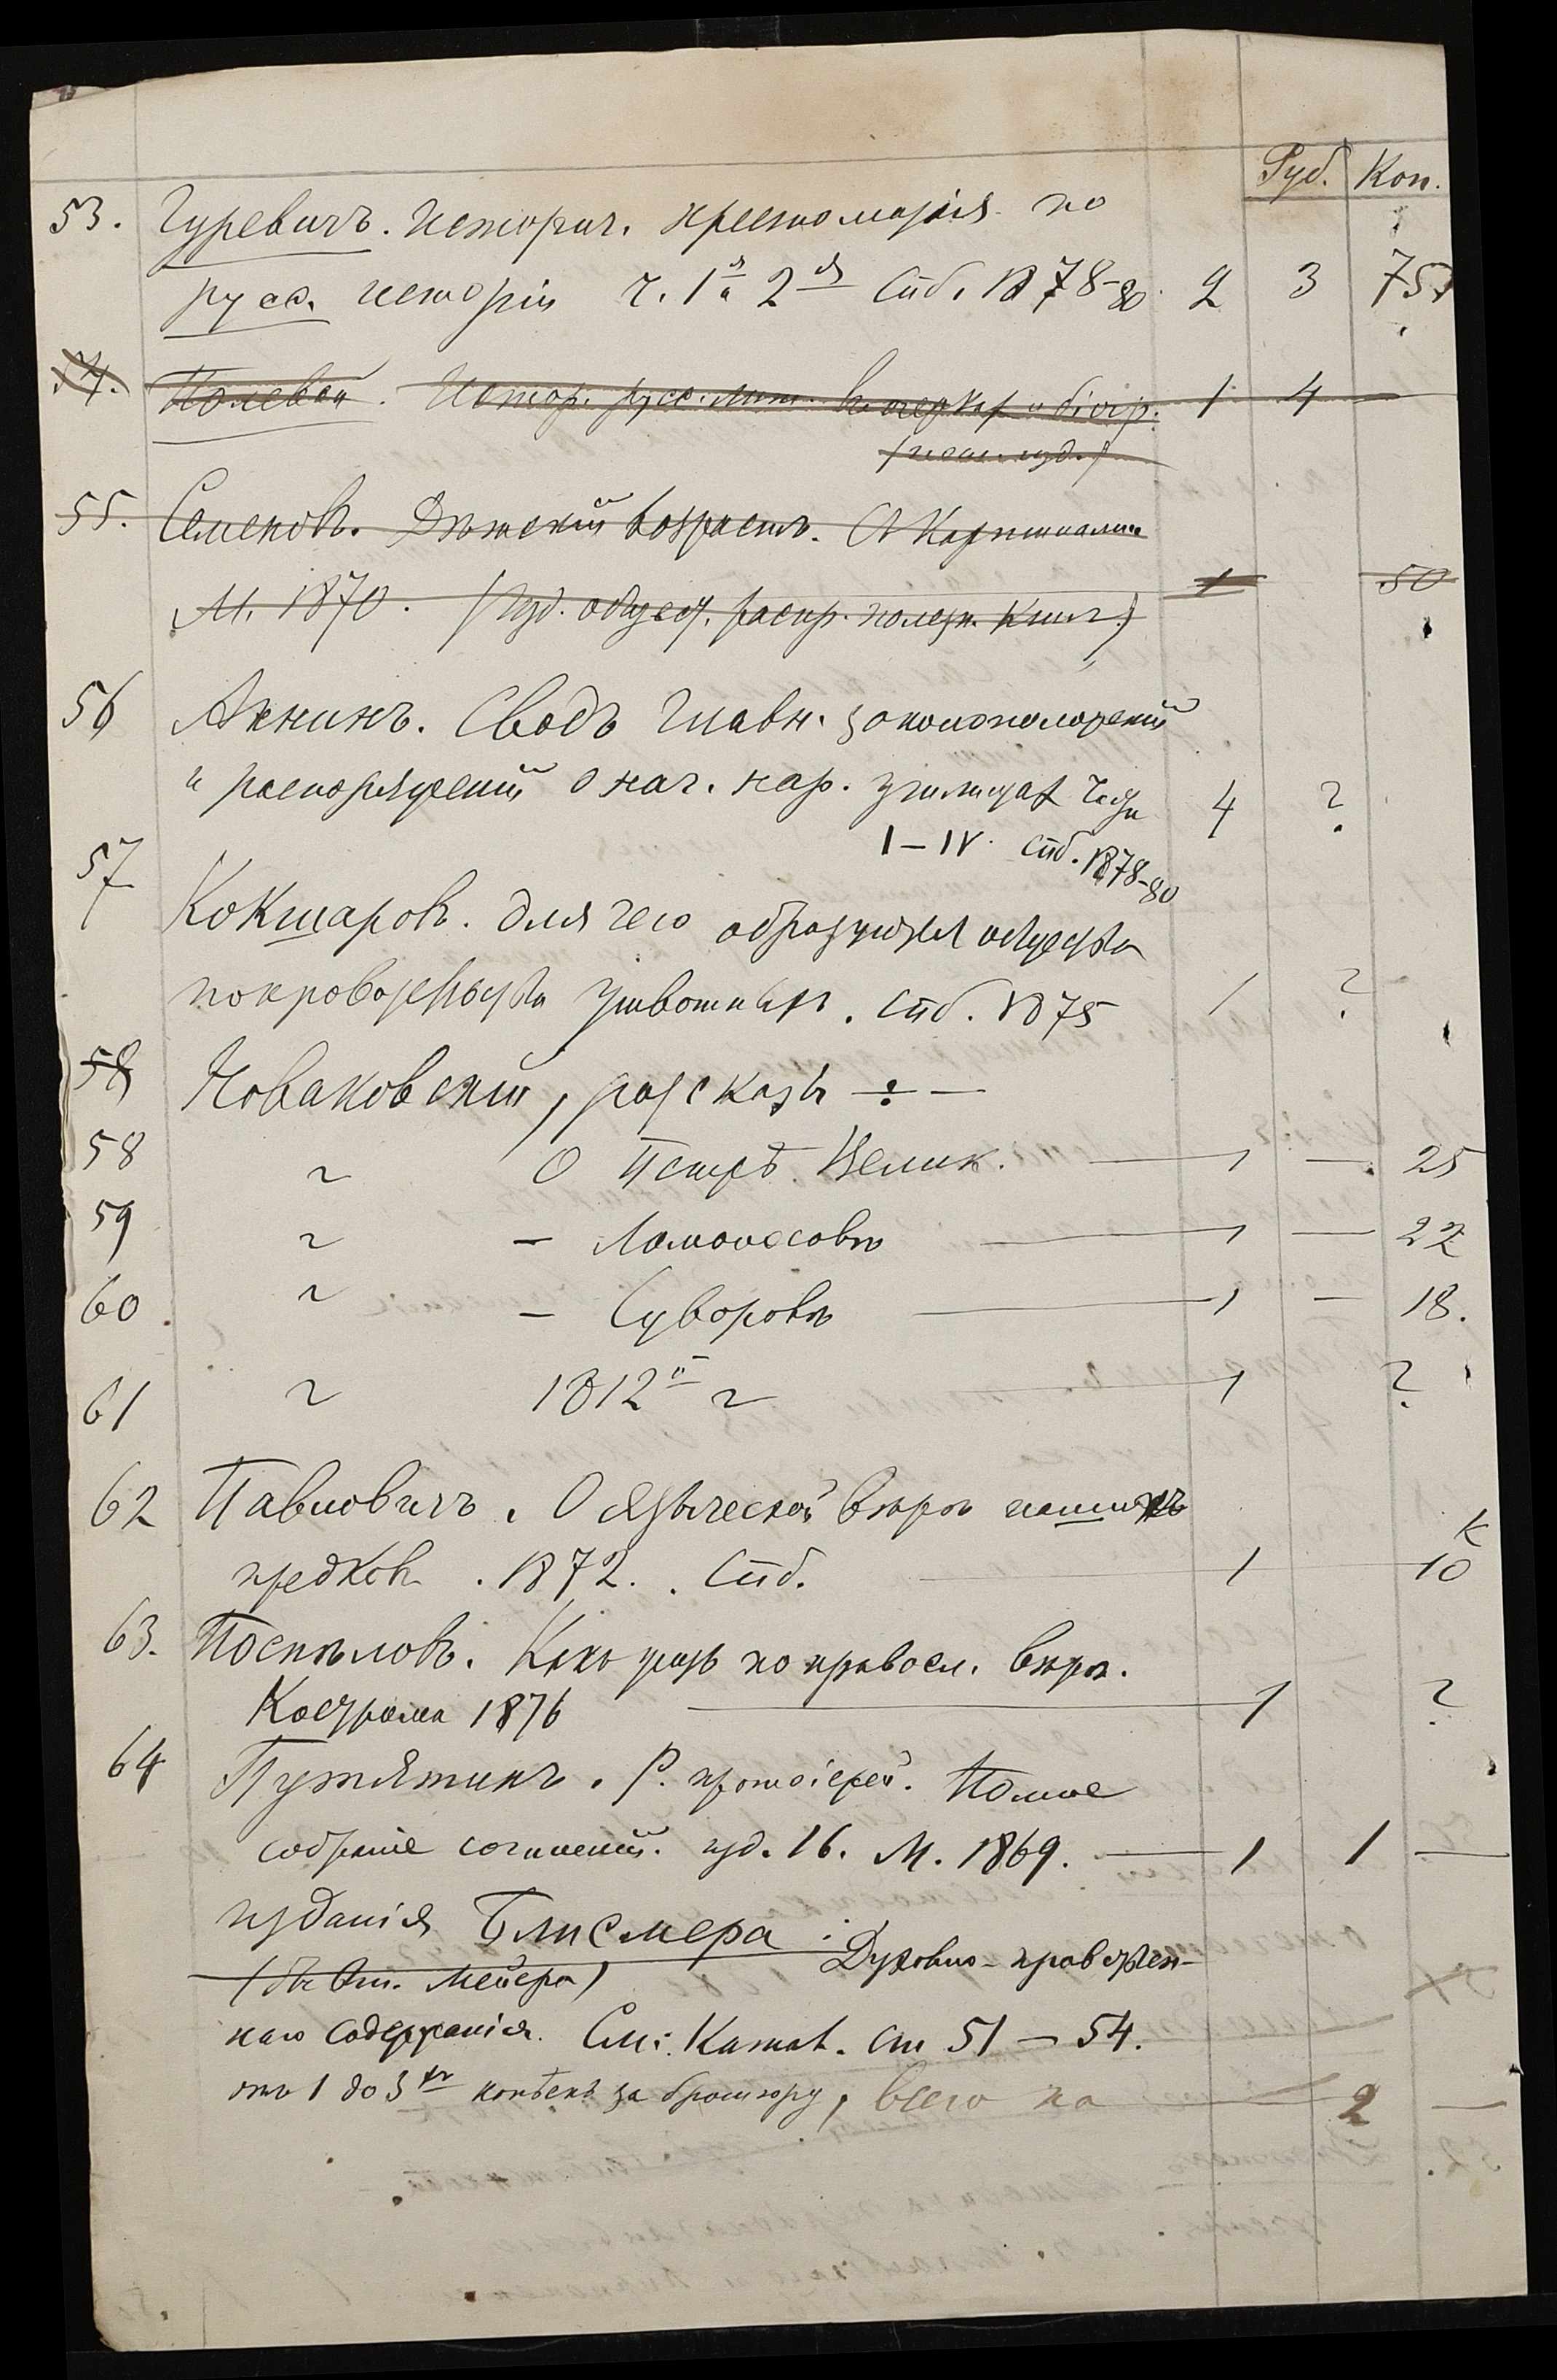 Руб. Коп.
53. Гуревичъ. Историч. хрестоматія по
русс. исторіи ч. 1я и 2ая Спб. 1878-80. 2 3 75
54. Полевой. Истор. русс. лит. въ очеркахъ и біогр. 1 4 —
55. Семеновъ. Дѣтскій возрастъ.
М. 1870. (Изд. общест. распр. полезн. книгъ) 1 50
56 Аннинъ. Сводъ главн. законоположеній
и распоряженій о нач. нар. училищахъ Части 4 ?
I–IV. Спб. 1878-80
57 Кокшаровъ. Для чего образуются общества
покровительства животнымъ. Спб. 1875 1 ?
58 Новаковскій, разсказы ÷ —
58 " О Петрѣ Велик. — 1 — 25
59 " — Ломоносовѣ — 1 — 22
60. " — Суворовѣ — 1 — 18.
61 " 1812й г — 1 ?
62 Павловичъ. О языческой вѣрѣ нашихъ к
предковъ. 1872. Спб. — 1 10
63. Поспѣловъ. Какъ жить по правосл. вѣрѣ.
Кострома 1876 — 1 ?
64 Путятинъ. Р. протоіерей. Полное
собраніе сочиненій. изд. 16. М. 1869. — 1 1 —
изданія Блисмера:
Мейера) Духовно-нравствен-
наго содержанія. См: Катал. ст 51 — 54.
отъ 1 до 3хъ копѣекъ за брошюру, всего на — 2 —